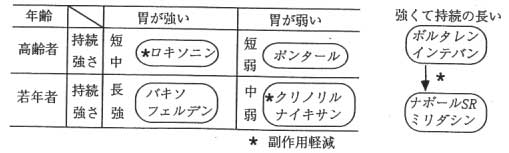 年齢 胃が強い 胃が弱い 強くて持続の長い
高齢者 持続 短 *ロキソニン 短 ポンタール ボルタレン
強さ 中 弱 インテバン
*
若年者 持続 長 バキソ 中 *クリノリル ナボールSR
強さ 強 フェルデン 弱 ナイキサン ミリダシン
* 副作用軽減